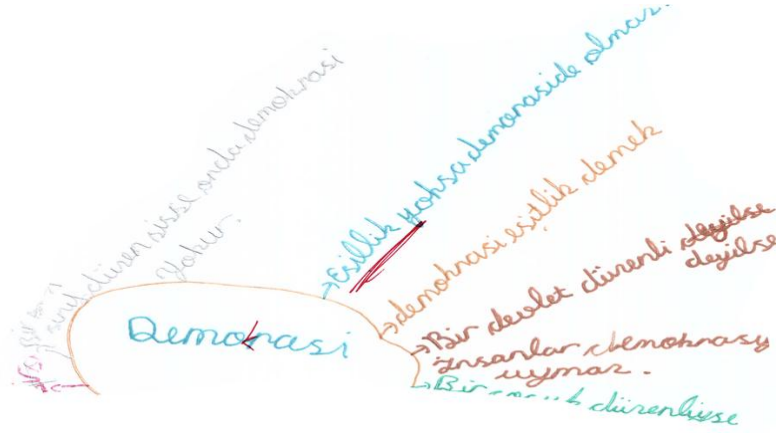 Bir
sınıf düzen sisse onda demokrasi
yoktur.
Esillik yoksa demonraside olmaz.
demokrasi eşitlik demek
Bir devlet düzenli deyilse
deyilse
İnsanlar demokrasy
uymaz.
Bir düzenliyse
Demokrasi